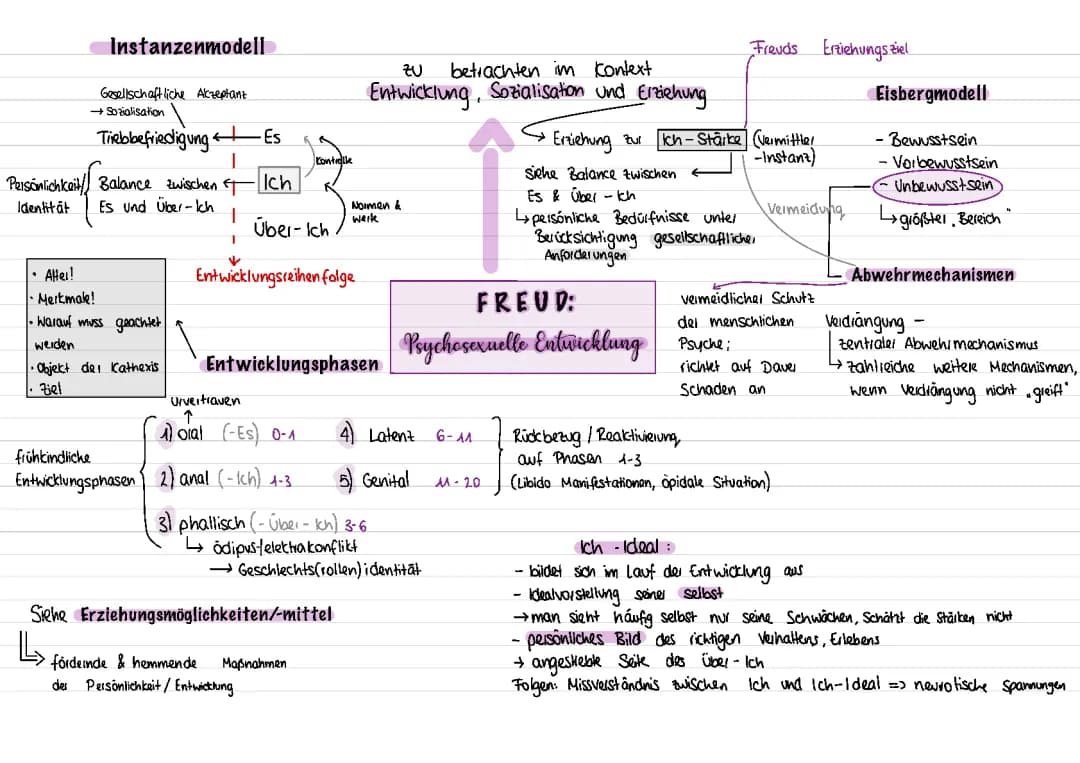 Instanzenmodell
Gesellschaftliche Akzeptant
→ Sozialisation
Triebbefriedigung ← Es
Kontrolle
Persönlichkeit/ Identität
Balance zwischen ← Ich
Es und Über-Ich
Normen & Werte
Über-Ich
Entwicklungsreihenfolge
zu betrachten im Kontext
Entwicklung, Sozialisation und Erziehung
→ Erziehung zur Ich-Stärke (Vermittler
-Instanz)
Siehe Balance zwischen ←
Es & Über-Ich
↳ persönliche Bedürfnisse unter
Berücksichtigung gesellschaftlicher
Anforderungen
Freuds Erziehungsziel
Eisbergmodell
- Bewusstsein
- Vorbewusstsein
- Unbewusstsein
↳ größter „Bereich"
Vermeidung
Abwehrmechanismen
vermeidlicher Schutz
der menschlichen
Psyche;
richtet auf Dauer
Schaden an
Verdrängung -
zentraler Abwehrmechanismus
↳ zahlreiche weitere Mechanismen,
wenn Verdrängung nicht „greift"
FREUD:
Psychosexuelle Entwicklung
• Alter!
• Merkmale!
• Worauf muss geachtet
werden
• Objekt der Kathexis
• Ziel
Entwicklungsphasen
Urvertrauen
↑
frühkindliche
Entwicklungsphasen
1) oral (-Es) 0-1
2) anal (-Ich) 1-3
3) phallisch (-Über-Ich) 3-6
↳ ödipus-/elektrakonflikt
→ Geschlechts(rollen)identität
4) Latenz 6-11
5) Genital 11-20
Rückbezug / Reaktivierung,
auf Phasen 1-3
(Libido Manifestationen, öpidale Situation)
Siehe Erziehungsmöglichkeiten/-mittel
↳ fördernde & hemmende Maßnahmen
der Persönlichkeit / Entwicklung
Ich-Ideal:
- bildet sich im Lauf der Entwicklung aus
- Idealvorstellung seiner selbst
→ man sieht häufig selbst nur seine Schwächen, Schätzt die Stärken nicht
- persönliches Bild des richtigen Verhaltens, Erlebens
→ angestrebte Seite des Über-Ich
Folgen: Missverständnis zwischen Ich und Ich-Ideal => neurotische Spannungen